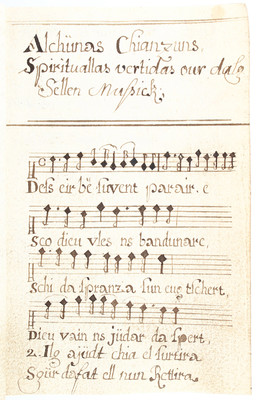 Alchünas Chianzuns,
Spirituallas vertidas our da la
Sellen Mussick;
Dels eir bê suvent par air, e
Sco dieu vles ns bandunare,
Schi da spranza sun eug tschert,
Dieu vain ns jüdar da spert,
2. Ilg ajüdt chia el surtira
Sqür dafat ell nun Rettira